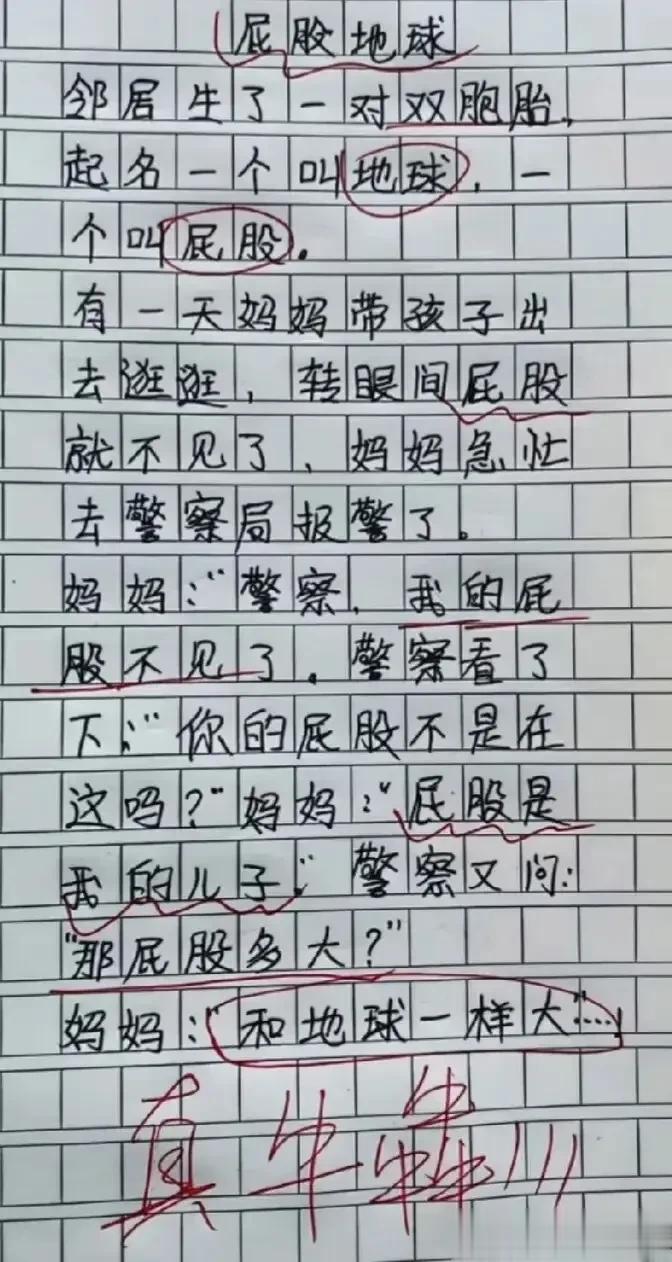 屁股地球
邻居生了一对双胞胎,
起名一个叫地球,一
个叫屁股。
有一天妈妈带孩子出
去逛逛,转眼间屁股
就不见了、妈妈急忙
去警察局报警了。
妈妈:“警察,我的屁
股不见了。警察看了
下:“你的屁股不是在
这吗?”妈妈:“屁股是
我的儿子。”警察又问:
“那屁股多大?”
妈妈:“和地球一样大”……
真牛犇!!!